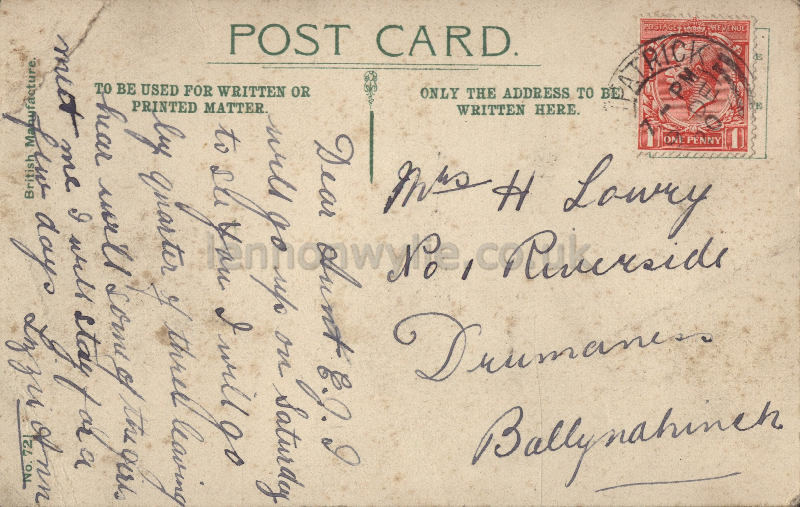 POST CARD.
TO BE USED FOR WRITTEN OR
PRINTED MATTER.
ONLY THE ADDRESS TO BE
WRITTEN HERE.
POSTAGE REVENUE
ONE PENNY
1 1
PATRICK
7 - PM
Mrs H Lowry
No 1 Riverside
Drumaness
Ballynahinch
Dear Aunt E. J. I
will go up on Saturday
to see you I will go
by quarter of three leaving
hear will some of the girls
meet me I will stay for a
few days Lizzie Ann
British Manufacture.
No. 72
lennonwylie.co.uk